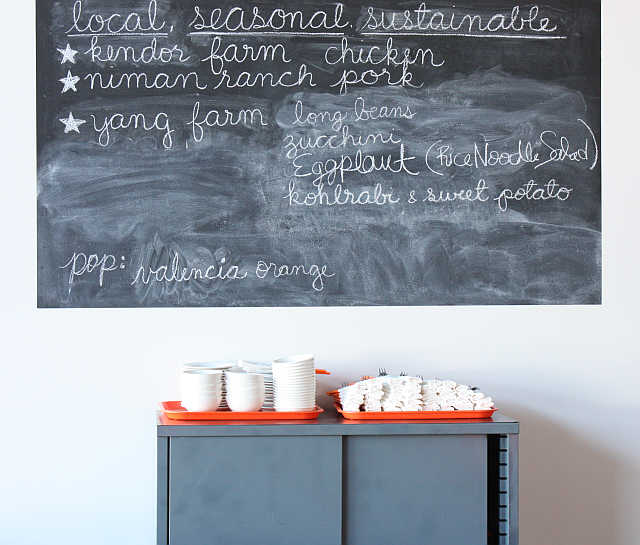 local, seasonal, sustainable
★ kendor farm chicken
★ niman ranch pork
★ yang farm long beans
zucchini
Eggplant (Rice Noodle Salad)
kohlrabi & sweet potato
pop: valencia orange